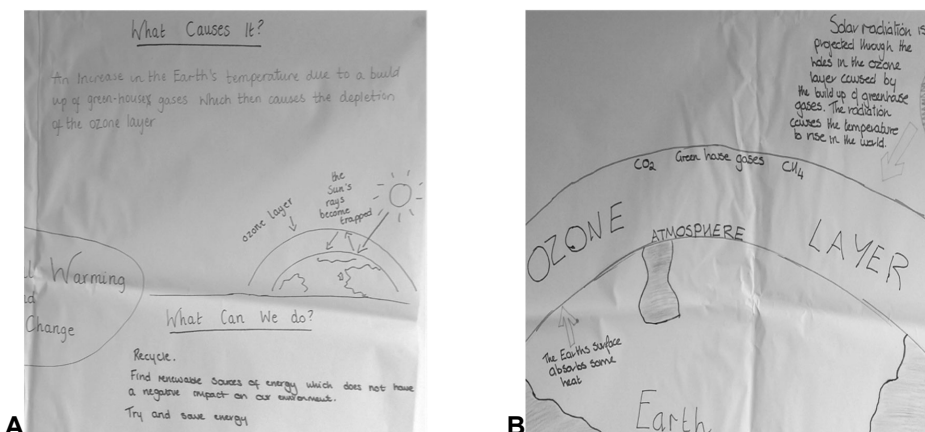 What Causes It?
An increase in the Earth's temperature due to a build
up of green-houses gases which then causes the depletion
of the ozone layer
the
Sun's
rays
become
trapped
ozone layer
Warming
Change
What Can We do?
Recycle.
Find renewable sources of energy which does not have
a negative impact on our environment.
Try and save energy
A
Solar radiation is
projected through the
holes in the ozone
layer caused by
the build up of greenhouse
gases. The radiation
causes the temperature
to rise in the world.
CO2 Green house gases CH4
OZONE LAYER
ATMOSPHERE
The Earths surface
absorbs some
heat
Earth
B